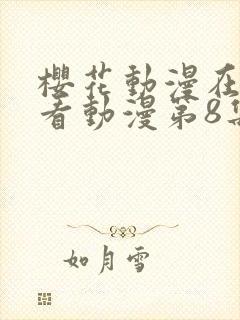 櫻花動漫在
看動漫第8集
如月雪